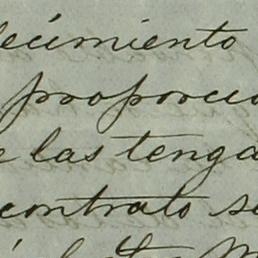 lecimiento
proporcio
e las tenga
contrato se